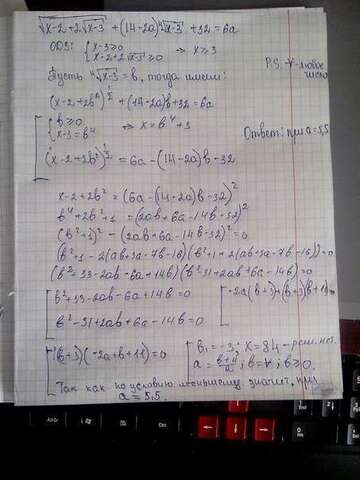 √(x-2+2√(x-3)) + (14-2a)∜(x-3) + 32 = 6a
ОДЗ: { x-3≥0
x-2+2√(x-3)≥0 ⇒ x≥3
Пусть ∜(x-3) = b, тогда имеем:
P.S. ∀-любое число
(x-2+2b²)^½ + (14-2a)b+32 = 6a
{ b≥0
x-3=b⁴ ⇒ x=b⁴+3
Ответ: при a=5,5
(x-2+2b²)^½ = 6a-(14-2a)b-32
x-2+2b² = (6a-(14-2a)b-32)²
b⁴+2b²+1 = (2ab+6a-14b-32)²
(b²+1)² - (2ab+6a-14b-32)² = 0
(b²+1-2(ab+3a-7b-16))(b²+1+2(ab+3a-7b-16))=0
(b²+33-2ab-6a+14b)(b²-31+2ab+6a-14b)=0
[ b²+33-2ab-6a+14b=0
b²-31+2ab+6a-14b=0
[ -2a(b+3)+(b+3)(b+11)=0
[ (b+3)(-2a+b+11)=0
[ b₁=-3; x=84-реш. нет.
a=(b+11)/2; b=∀; b≥0.
Так как по условию меньшему значит. при
a=5,5.